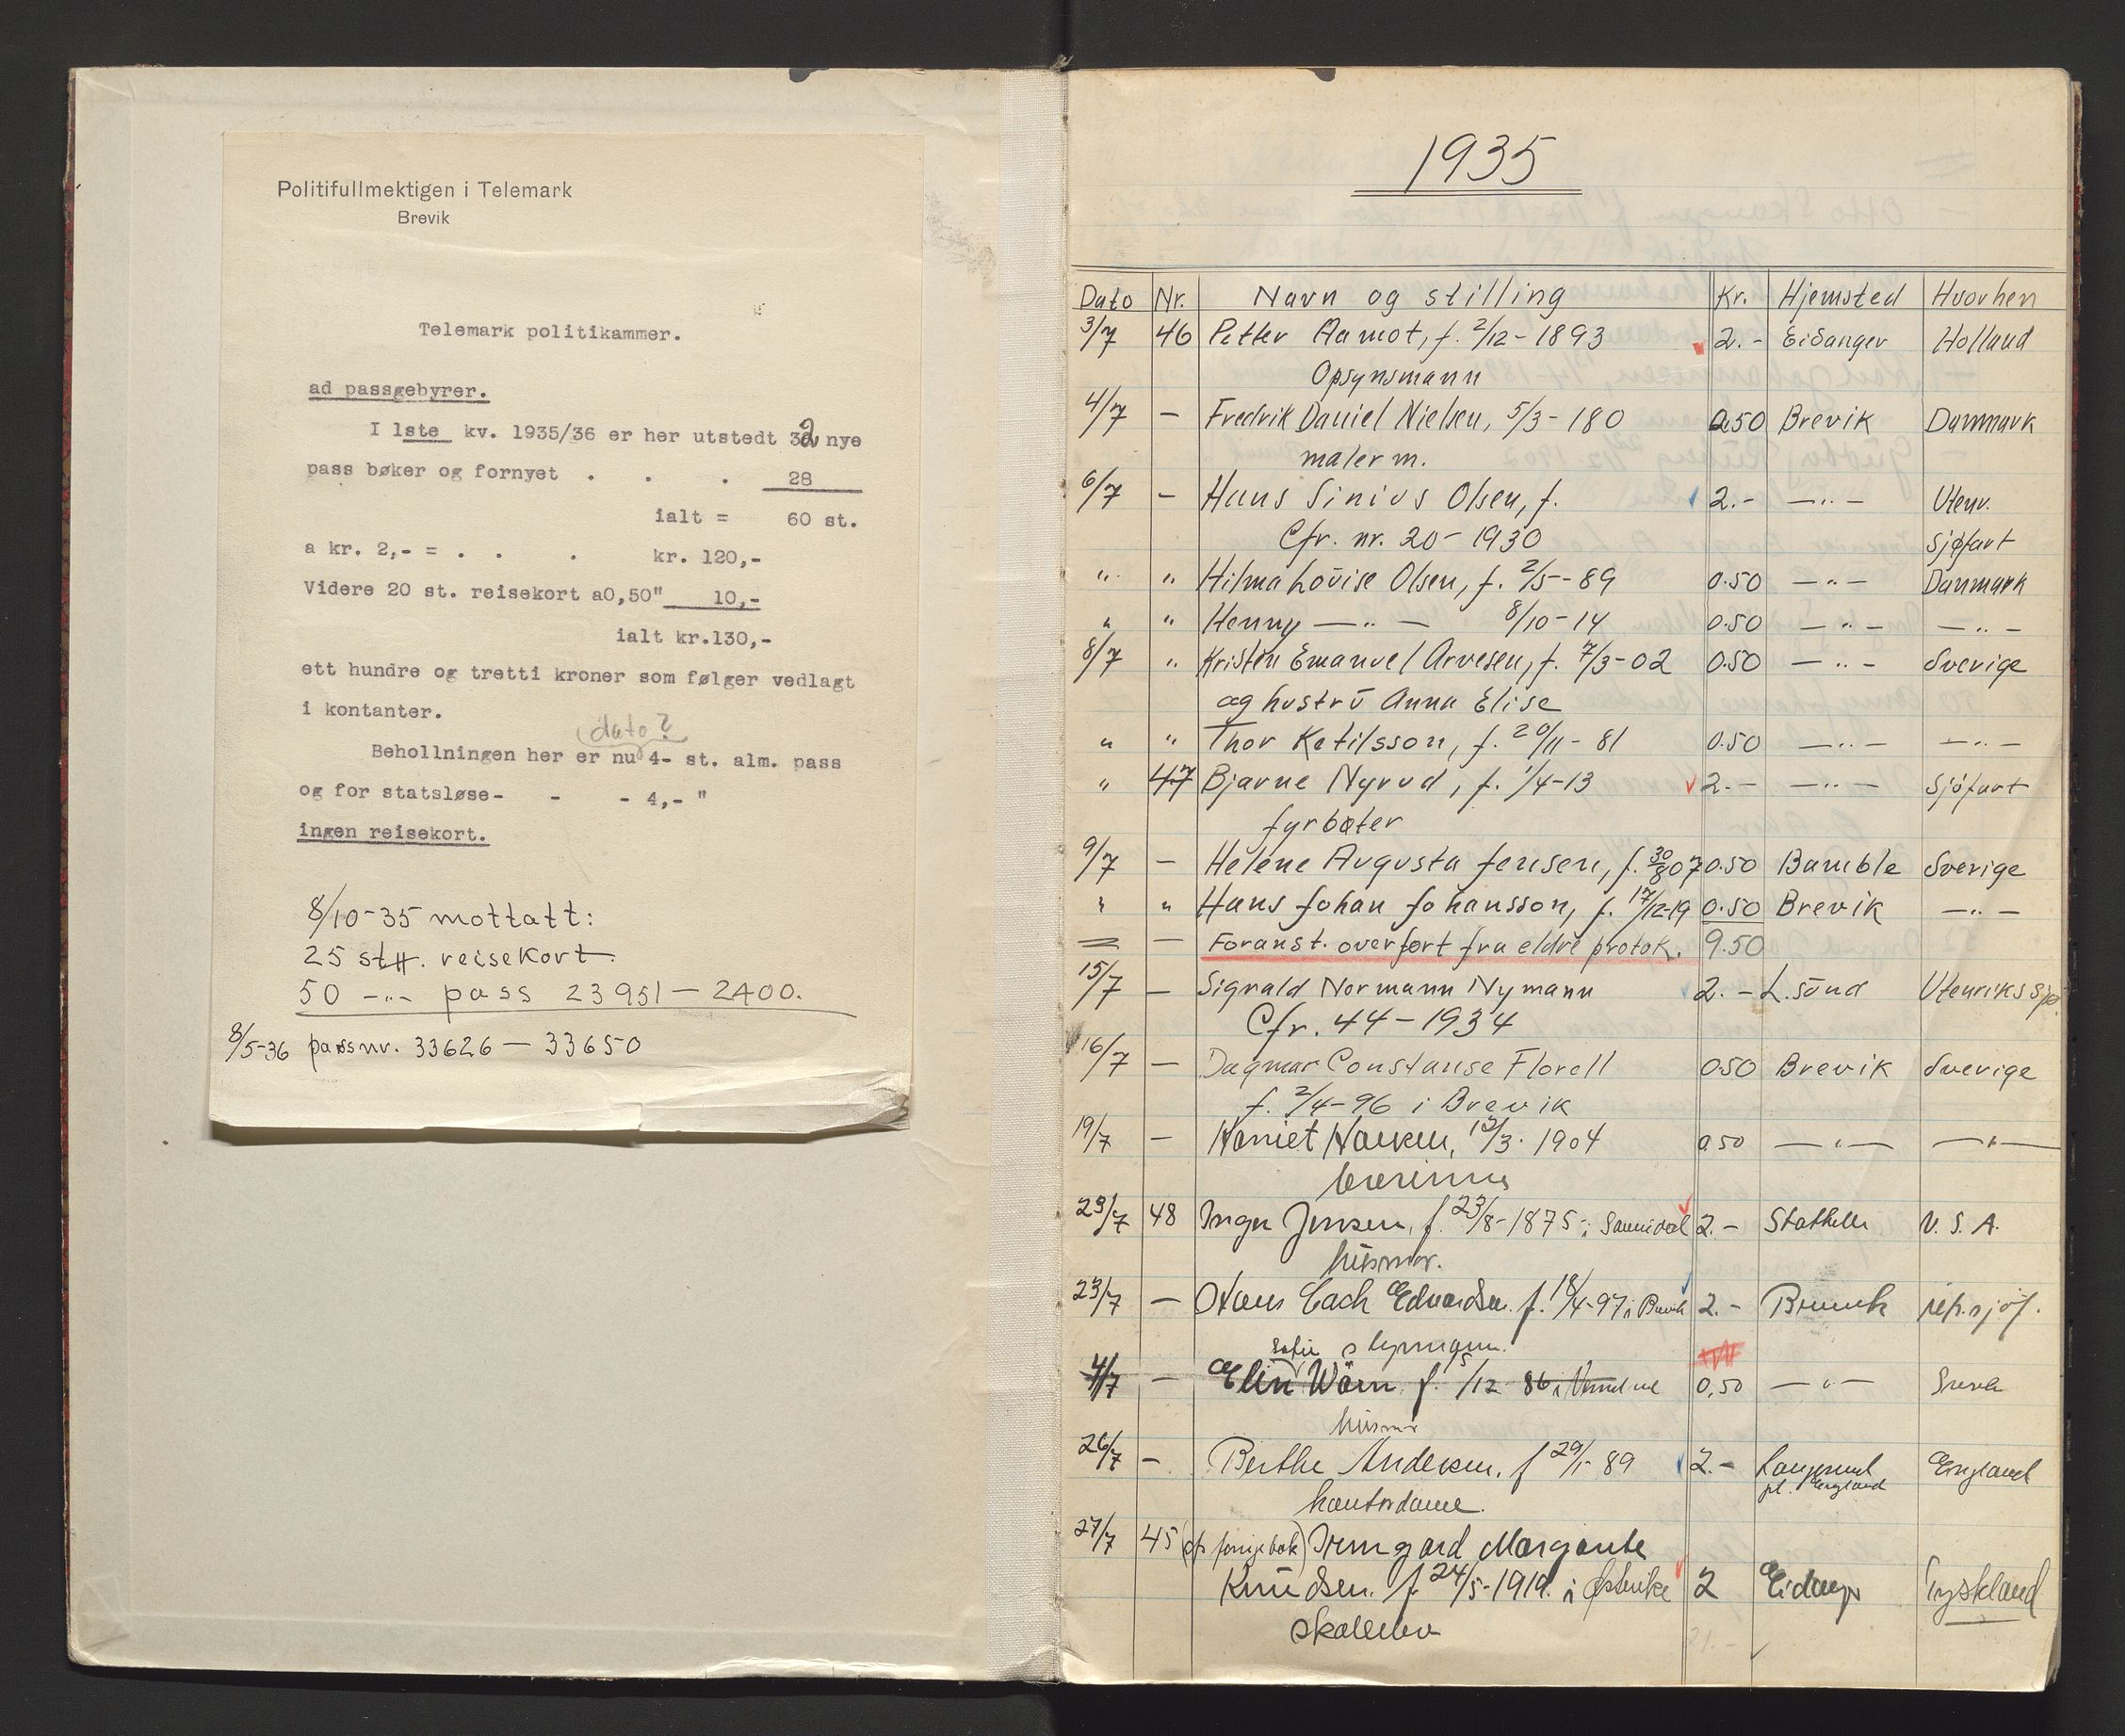 Politifullmektigen i Telemark
Brevik
Telemark politikammer.
ad passgebyrer.
I 1ste kv. 1935/36 er her utstedt 32 nye
pass bøker og fornyet . . . 28
ialt = 60 st.
a kr. 2,- = . . . kr. 120,-
Videre 20 st. reisekort a0,50" 10,-
ialt kr.130,-
ett hundre og tretti kroner som følger vedlagt
i kontanter.
(dato?
Behollningen her er nu 4- st. alm. pass
og for statsløse- - - 4,- "
ingen reisekort.
8/10-35 mottatt:
25 stk. reisekort.
50 -"- pass 23951 - 2400.
8/5-36 passnr. 33626 - 33650
1935
Dato Nr. Navn og stilling Kr. Hjemsted Hvorhen
3/7 46 Petter Aamot, f. 2/12 - 1893 2.- Eidanger Holland
Opsynsmann
4/7 - Fredrik Daniel Nielsen, 5/3 - 180 0.50 Brevik Danmark
maler m.
6/7 - Hans Sinius Olsen, f. 2.- -"- Utenr.
Cfr. nr. 20 - 1930 Sjøfart
" " Hilma Lovise Olsen, f. 2/5 - 89 0.50 -"- Danmark
" " Henny -"- 8/10 - 14 0.50 -"- -"-
8/7 " Kristen Emanuel Arvesen, f. 7/3 - 02 0.50 -"- Sverige
og hustru Anna Elise
" " Thor Ketilsson, f. 20/11 - 81 0.50 -"- -"-
" 47 Bjarne Nyrud, f. 1/4 - 13 2.- -"- Sjøfart
fyrbøter
9/7 - Helene Augusta Jensen, f. 30/8 07 0.50 Bamble Sverige
" " Hans Johan Johansson, f. 17/12-19 0.50 Brevik -"-
= - Foranst. overført fra eldre protok. 9.50
15/7 - Signald Normann Nymann 2.- L.sund Utenriks sjø
Cfr. 44 - 1934
16/7 - Dagmar Constanse Florell 0.50 Brevik Sverige
f. 2/4 - 96 i Brevik
19/7 - Harriet Hansen, 13/3. 1904 0.50 -"- -"-
lærerinne
23/7 48 Inger Jensen, f. 23/8 - 1875 i Sannidal 2.- Stathelle U.S.A.
husmor.
23/7 - Hans Cach Edvardsen. f. 18/4-97 i Brevik 2.- Brevik
styrmann.
Sofie
4/7 - Elin Wörn f. 5/12 86 0,50 -"-
husmor
26/7 - Berthe Andersen. f 29/1 - 89 2.- Langesund England
pt. England
kontordame.
27/7 45 (cfr forrige bok) Irmgard Margarete
Knudsen. f 24/5-1919. i Østerike 2 Eidanger Tyskland
skoleelev
21.-